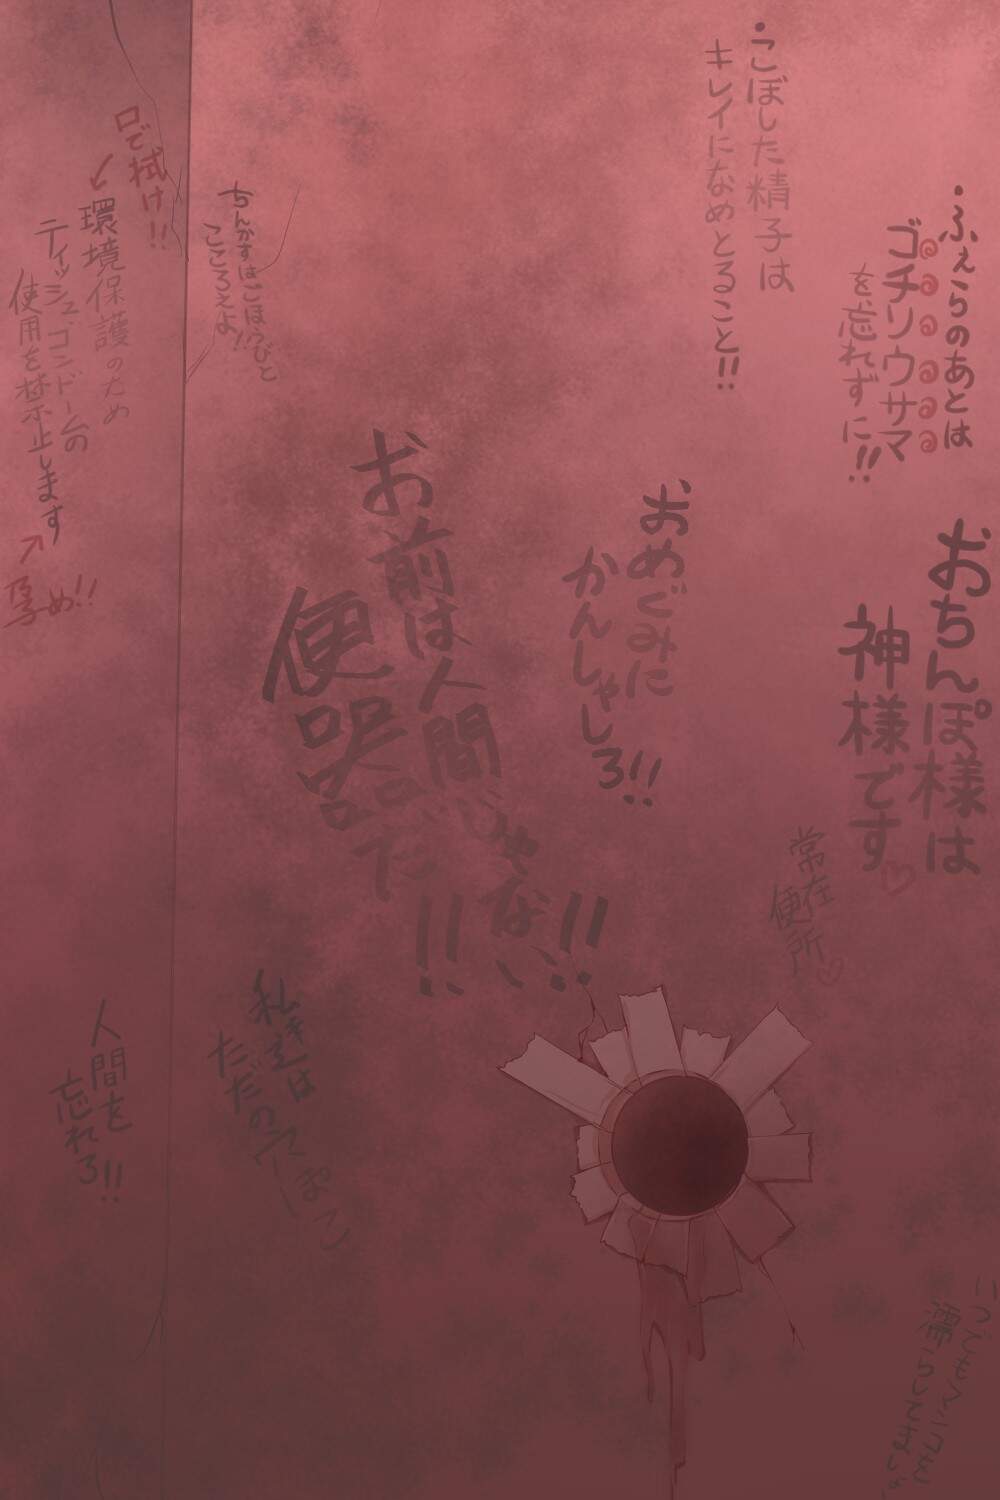 ・ふぇらのあとは
ゴチソウサマ
を忘れずに!!
・こぼした精子は
キレイになめとること!!
おちんぽ様は
神様です♡
おめぐみに
かんしゃしろ!!
お前は人間じゃない!!
便器だ!!
常在
便所♡
ちんかすはごほうびと
こころえよ!!
口で拭け!!
環境保護のため
ティッシュ、ゴンドームの
使用を禁止します
孕め!!
私達は
ただの
人間を
忘れろ!!
いつでもマンコを
濡らして